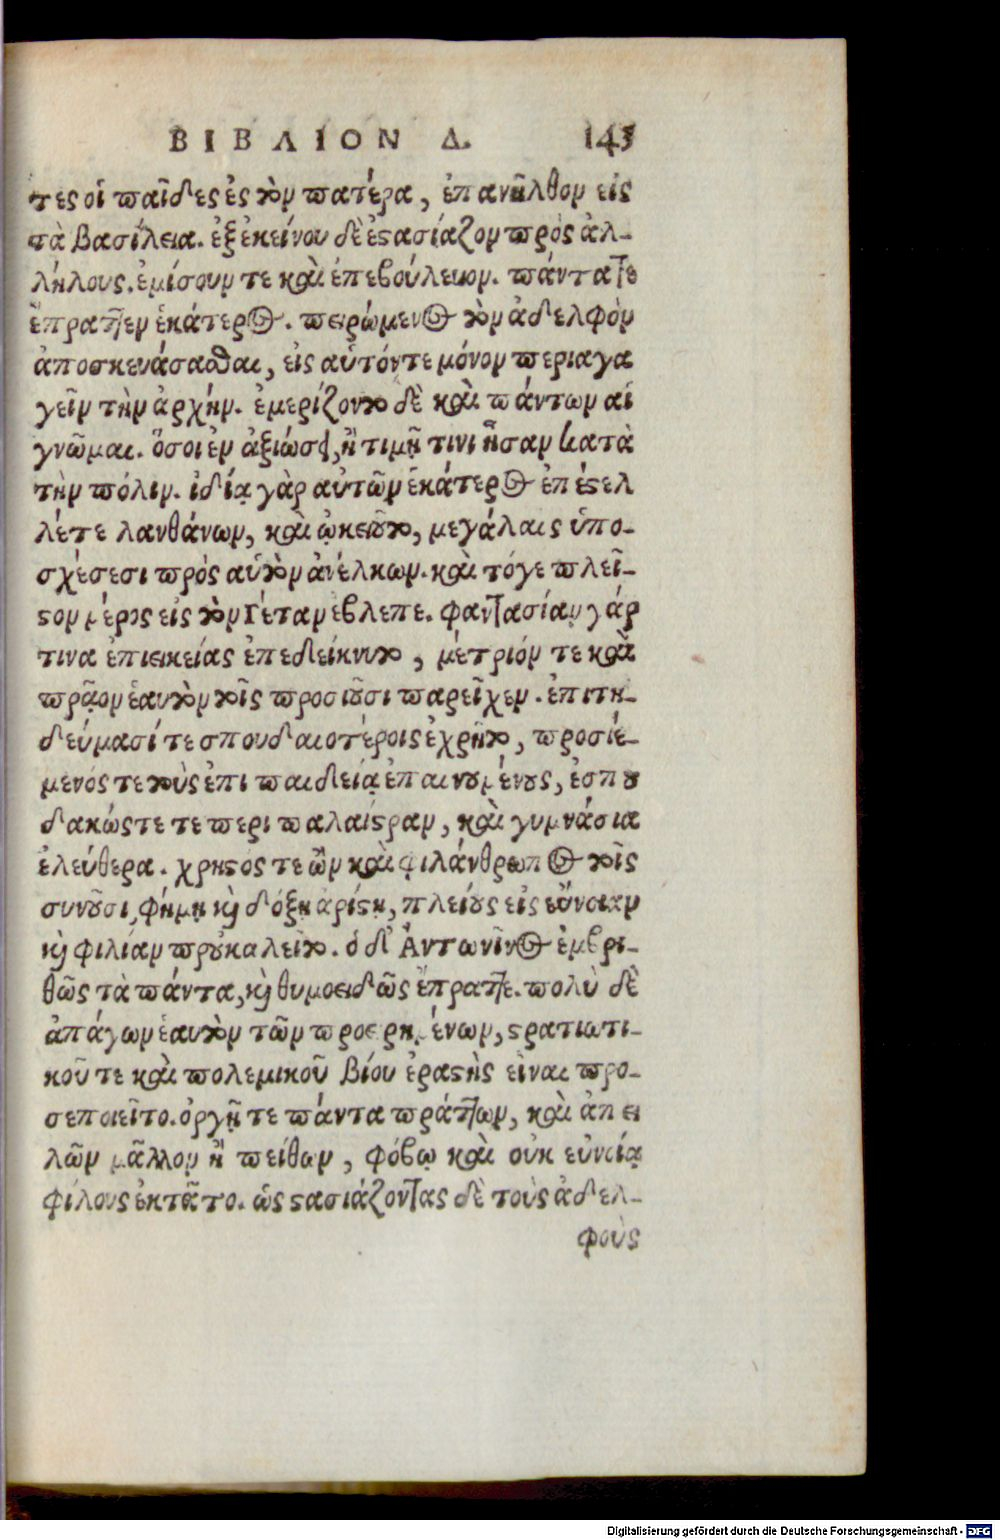 ΒΙΒΛΙΟΝ Δ. 143
τες οἱ παῖδες ἐς τὸν πατέρα, ἐπανῆλθον εἰς
τὰ βασίλεια. ἐξ ἐκείνου δὲ ἐστασίαζον πρὸς ἀλ-
λήλους. ἐμίσουν τε καὶ ἐπεβούλευον. πάντα τε
ἔπραττεν ἑκάτερος. πειρώμενος τὸν ἀδελφὸν
ἀποσκευάσασθαι, εἰς αὑτόν τε μόνον περιαγα
γεῖν τὴν ἀρχήν. ἐμερίζοντο δὲ καὶ πάντων αἱ
γνῶμαι. ὅσοι ἐν ἀξιώσει, ἢ τιμῇ τινι ἦσαν κατὰ
τὴν πόλιν. ἰδίᾳ γὰρ αὐτῶν ἑκάτερος ἐπέστελ
λέ τε λανθάνων, καὶ ᾠκειοῦτο, μεγάλαις ὑπο-
σχέσεσι πρὸς αὑτὸν ἀνέλκων. καὶ τόγε πλεῖ-
στον μέρος εἰς τὸν Γέταν ἔβλεπε. φαντασίαν γάρ
τινα ἐπιεικείας ἐπεδείκνυτο, μέτριόν τε καὶ
πρᾷον ἑαυτὸν τοῖς προσιοῦσι παρεῖχεν. ἐπιτη-
δεύμασί τε σπουδαιοτέροις ἐχρῆτο, προσιέ-
μενός τε τοὺς ἐπι παιδείᾳ ἐπαινουμένους, ἐσπου
δακώς τε τε περι παλαίστραν, καὶ γυμνάσια
ἐλεύθερα. χρηστός τε ὢν καὶ φιλάνθρωπος τοῖς
συνοῦσι, φήμῃ καὶ δόξῃ ἀρίστῃ, πλείους εἰς εὔνοιαν
καὶ φιλίαν προυκαλεῖτο. ὁ δ' Ἀντωνῖνος ἐμβρι-
θῶς τὰ πάντα, καὶ θυμοειδῶς ἔπραττε. πολὺ δὲ
ἀπάγων ἑαυτὸν τῶν προειρημένων, στρατιωτι-
κοῦ τε καὶ πολεμικοῦ βίου ἐραστὴς εἶναι προ-
σεποιεῖτο. ὀργῇ τε πάντα πράττων, καὶ ἀπει
λῶν μᾶλλον ἢ πείθων, φόβῳ καὶ οὐκ εὐνοίᾳ
φίλους ἐκτᾶτο. ὡς στασιάζοντας δὲ τοὺς ἀδελ-
φοὺς
Digitalisierung gefördert durch die Deutsche Forschungsgemeinschaft - DFG